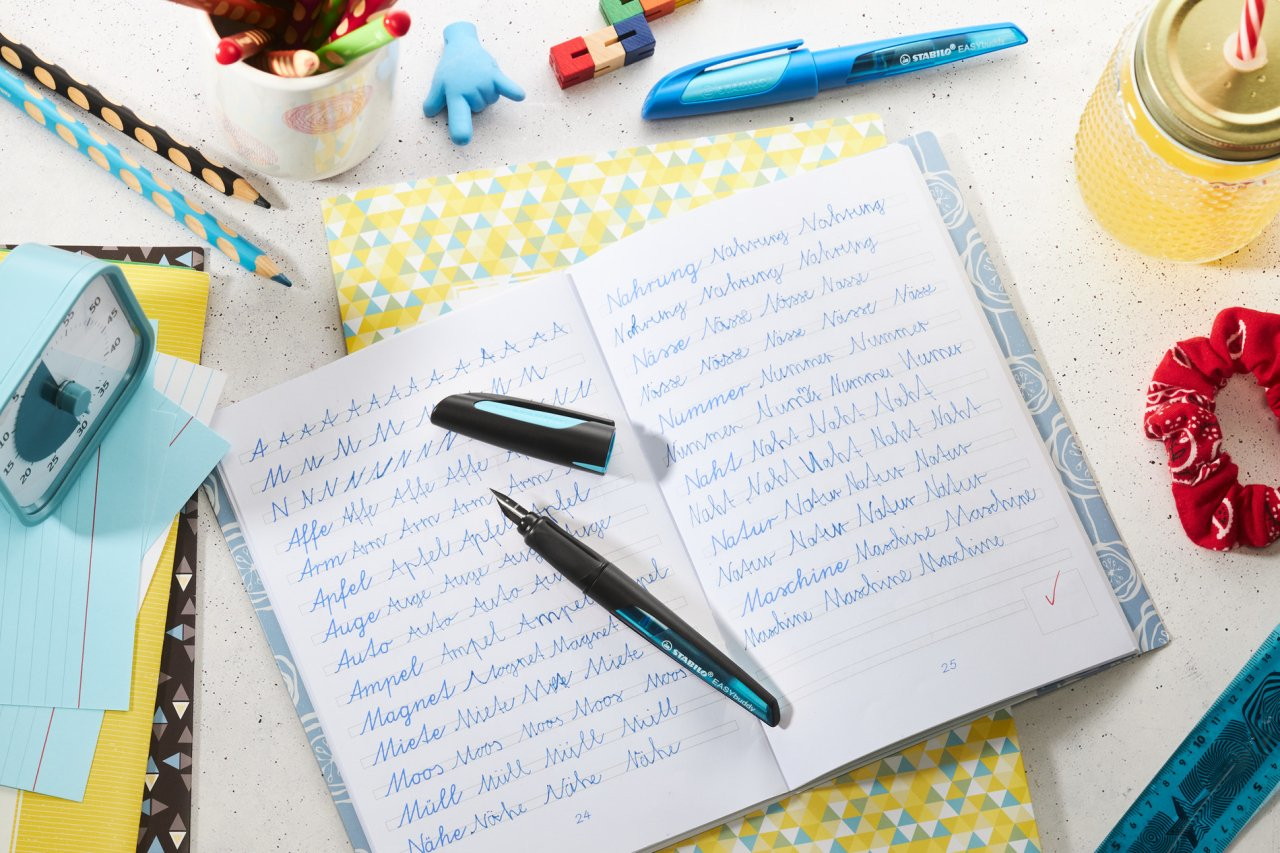 STABILO EASYbuddy
A A A A A A A A A A A
M M M M M M M
N N N N N N N N N
Affe Affe Affe Affe Affe
Arm Arm Arm Arm Arm Arm
Apfel Apfel Apfel Apfel
Auge Auge Auge Auge
Auto Auto Auto Auto
Ampel Ampel Ampel Ampel
Magnet Magnet Magnet
Miete Miete Miete
Moos Moos Moos Moos
Müll Müll Müll Müll
Nähe Nähe Nähe Nähe
24
STABILO EASYbuddy
Nahrung Nahrung Nahrung
Nahrung Nahrung Nahrung
Nässe Nässe Nässe
Nässe Nässe Nässe Nässe Nässe
Nummer Nummer Nummer
Nummer Nummer Nummer
Naht Naht Naht Naht
Naht Naht Naht Naht Naht
Natur Natur Natur Natur
Natur Natur Natur Natur
Maschine Maschine Maschine
Maschine Maschine Maschine
25
55 50 45 40 35 30 25 20 15 10